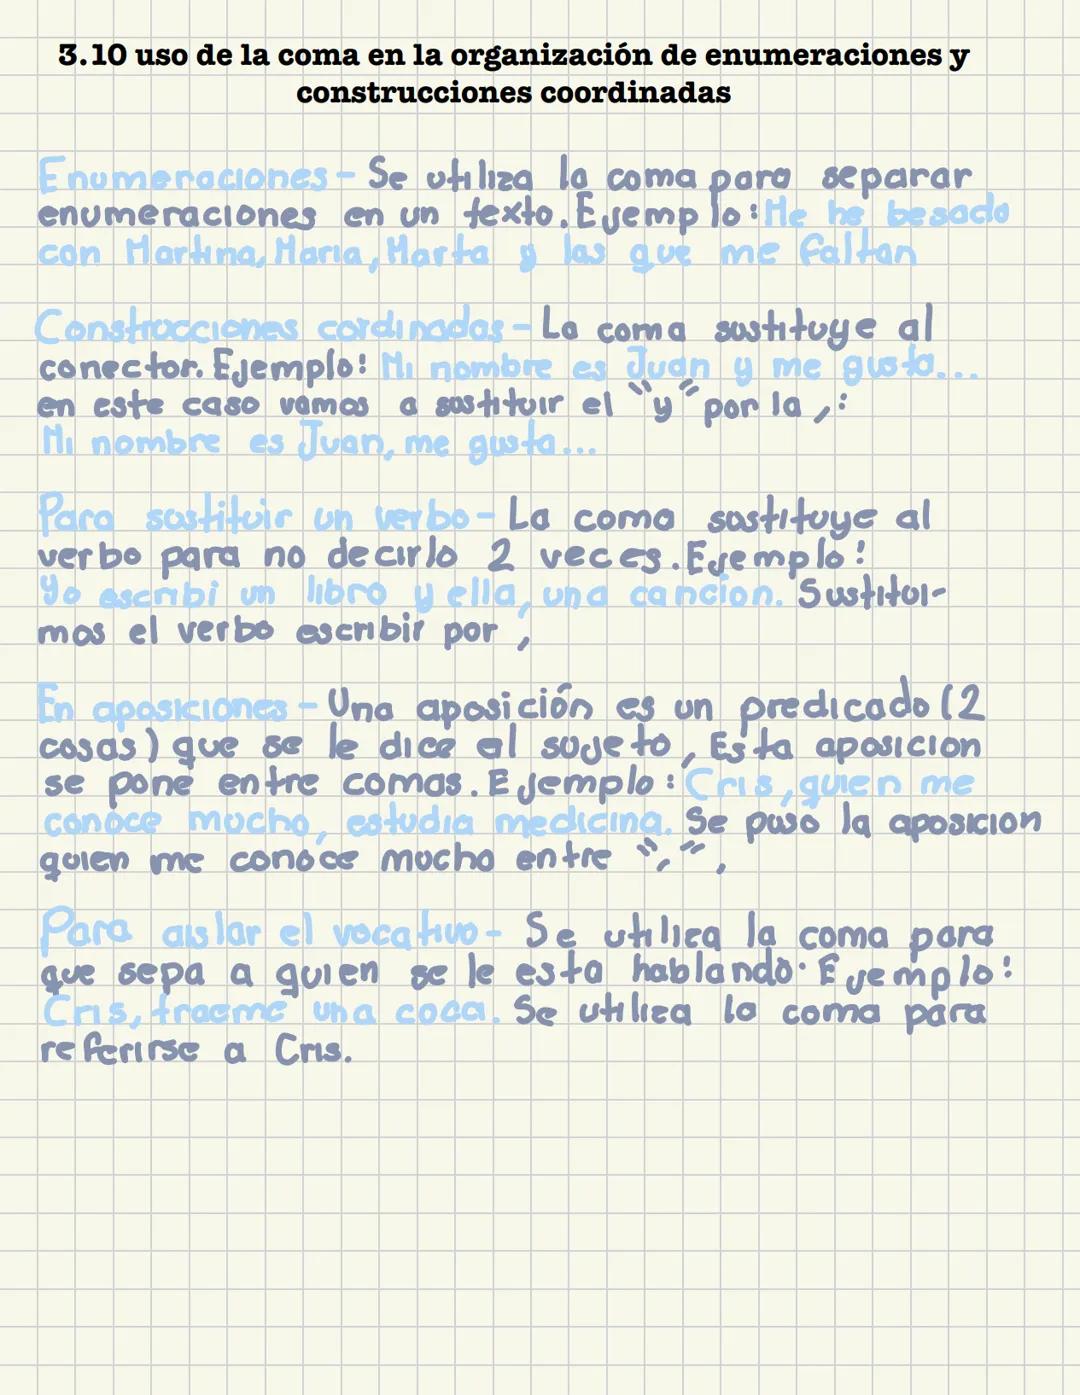 3.10 uso de la coma en la organización de enumeraciones y
construcciones coordinadas
Enumeraciones - Se utiliza la coma para separar
enumeraciones en un texto. Ejemplo: Me he besado
con Martina, Maria, Marta y las que me faltan
Construcciones cordinadas - La coma sustituye al
conector. Ejemplo: Mi nombre es Juan y me gusta...
en este caso vamos a sustituir el "y" por la ,:
Mi nombre es Juan, me gusta...
Para sustituir un verbo - La coma sustituye al
verbo para no decirlo 2 veces. Ejemplo:
Yo escribi un libro y ella, una cancion. Sustitui-
mos el verbo escribir por ,
En aposiciones - Una aposición es un predicado (2
cosas) que se le dice al sujeto, Esta aposicion
se pone entre comas. Ejemplo: Cris, quien me
conoce mucho, estudia medicina. Se puso la aposicion
quien me conoce mucho entre ",",
Para aislar el vocativo - Se utiliza la coma para
que sepa a quien se le esta hablando. Ejemplo:
Cris, traeme una coca. Se utiliza la coma para
referirse a Cris.